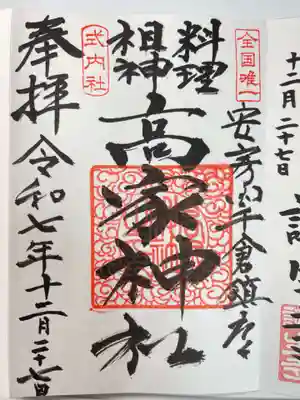 十二月二十七日
全国唯一
安房国千倉鎮座
料理
祖神
高家神社
式内社
奉拝
令和七年十二月二十七日